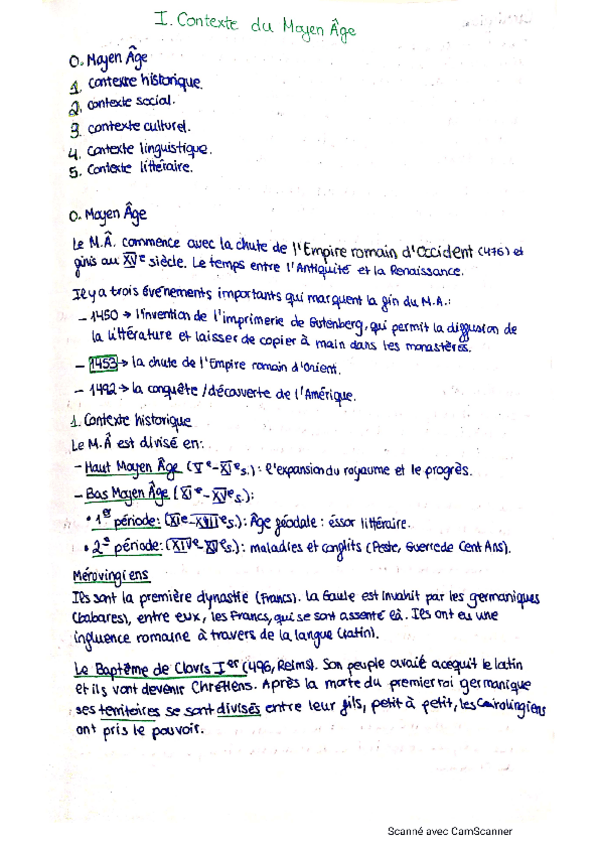 I. Contexte du Moyen Âge
0. Moyen Âge
1. Contexte historique.
2. contexte social.
3. contexte culturel.
4. Contexte linguistique.
5. Contexte littéraire.
0. Moyen Âge
Le M.Â. commence avec la chute de l'Empire romain d'Occident (476) et
finis au XVe siècle. Le temps entre l'Antiquité et la Renaissance.
Il y a trois événements importants qui marquent la fin du M.A.:
- 1450 → l'invention de l'imprimerie de Gutenberg, qui permit la diffusion de
la littérature et laisser de copier à main dans les monastères.
- 1453 → la chute de l'Empire romain d'Orient.
- 1492 → la conquête / découverte de l'Amérique.
1. Contexte historique
Le M.Â est divisé en:
- Haut Moyen Âge (Ve-XIe s.): l'expansion du royaume et le progrès.
- Bas Moyen Âge (XIe-XVe s.):
• 1er période: (XIe-XIIIe s.): Âge féodale: éssor littéraire.
• 2e période: (XIVe-XVe s.): maladies et conflits (Peste, Guerre de Cent Ans).
Mérovingiens
Ils sont la première dynastie (Francs). La Gaule est invahit par les germaniques
(babares), entre eux, les Francs, qui se sont assenté là. Ils ont eu une
influence romaine à travers de la langue (latin).
Le Baptême de Clovis Ier (496, Reims). Son peuple avait acequit le latin
et ils vont devenir Chrétiens. Après la morte du premier roi germanique
ses territoires se sont divisés entre leur fils, petit à petit, les Carolingiens
ont pris le pouvoir.
Scanné avec CamScanner